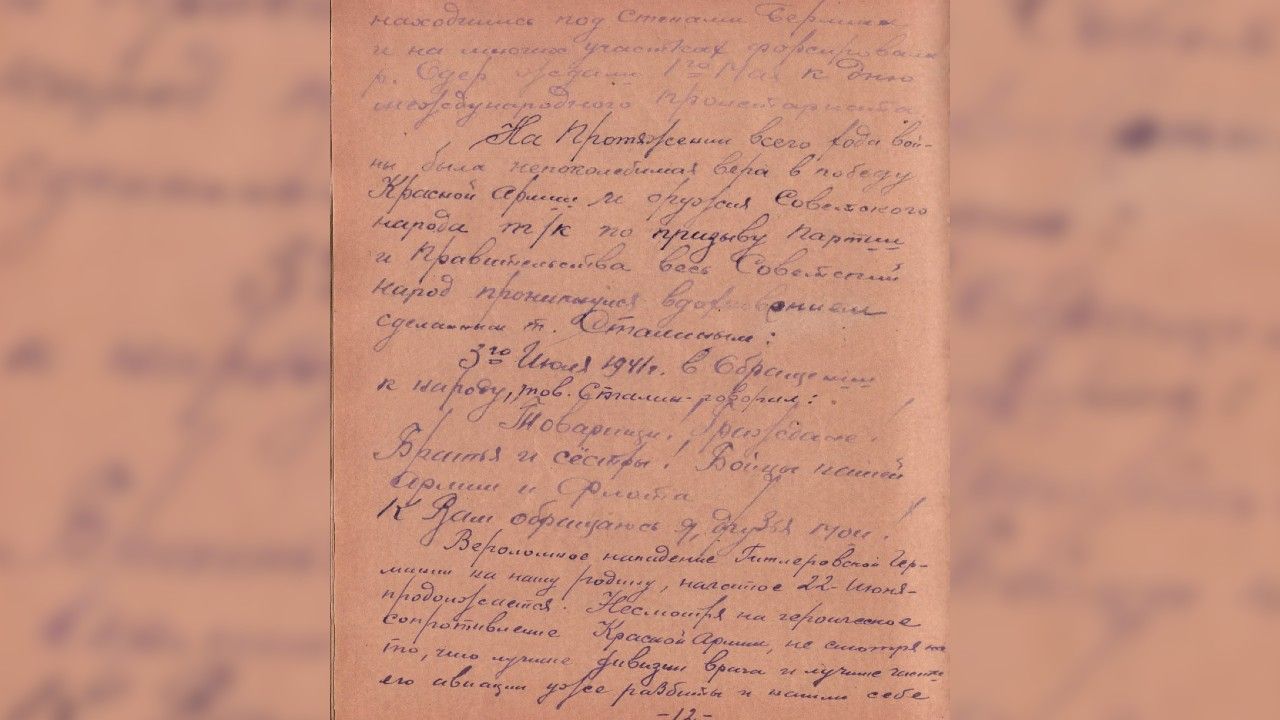 находились под Стенами Берлина
и на многих участках форсировали
р. Одер ждали 1го Мая к Дню
международного пролетариата
На Протяжении всего года вой-
ны была непоколебимая вера в победу
Красной Армии и оружия Советского
народа т/к по призыву Партии
и Правительства весь Советский
народ проникнулся вдохновением
сделанным т. Сталиным:
3го Июля 1941г. в Обращении
к народу, тов. Сталин говорил:
Товарищи! Граждане!
Братья и сёстры! Бойцы нашей
Армии и Флота
К Вам обращаюсь я, друзья мои!
Вероломное нападение Гитлеровской Гер-
мании на нашу родину, начатое 22 Июня-
продолжается. Несмотря на героическое
сопротивление Красной Армии, не смотря на
то, что лучшие дивизии врага и лучшие части
его авиации уже разбиты и нашли себе
-12-